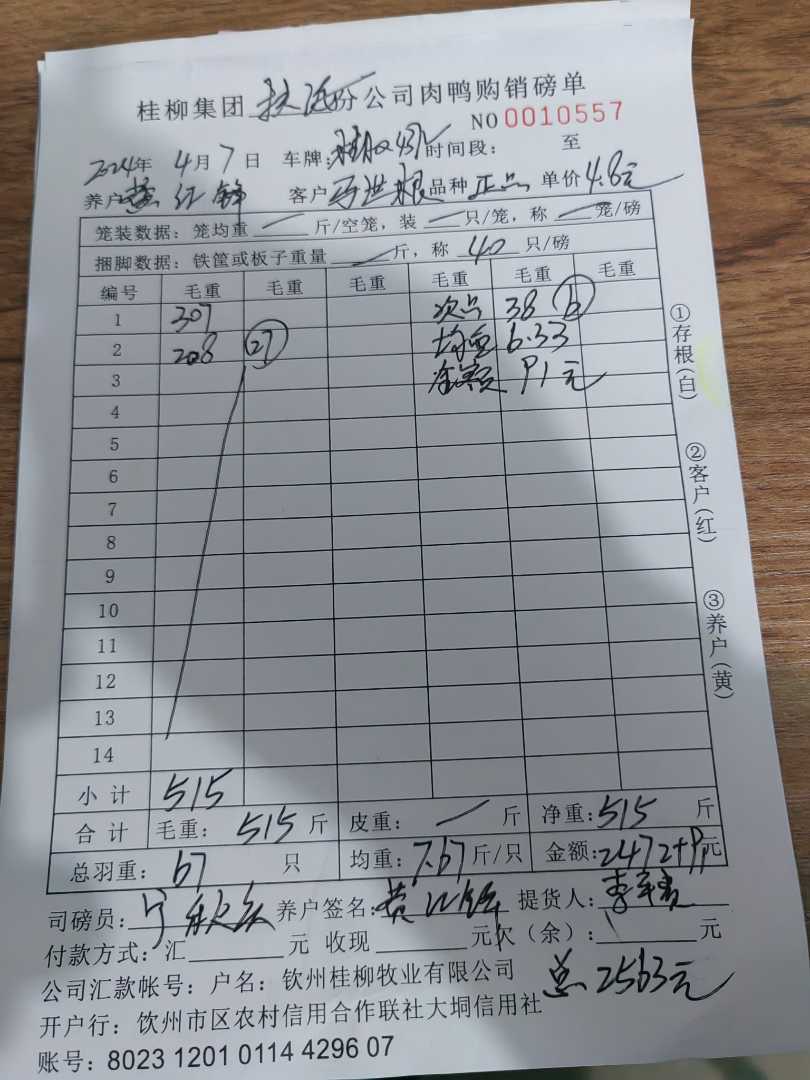 桂柳集团 份公司肉鸭购销磅单
NO 0010557
2024年 4月7日 车牌: 时间段: 至
养户 黄红锋 客户 品种 正品 单价 4.8元
笼装数据:笼均重 — 斤/空笼,装 — 只/笼,称 — 笼/磅
捆脚数据:铁筐或板子重量 — 斤,称 40 只/磅
编号 毛重 毛重 毛重 毛重 毛重 毛重
1 307 次品 38 ⑥
2 208 ㉗ 均重 6.33
3 金额 91元
4
5
6
7
8
9
10
11
12
13
14
小计 515
合计 毛重: 515 斤 皮重: — 斤 净重: 515 斤
总羽重: 67 只 均重: 7.67 斤/只 金额: 2472+91元
司磅员: 养户签名: 黄红锋 提货人: 李
付款方式:汇 元 收现 元欠(余): 元
公司汇款帐号:户名:钦州桂柳牧业有限公司
总2563元
开户行:饮州市区农村信用合作联社大垌信用社
账号:8023 1201 0114 4296 07
①存根(白)
②客户(红)
③养户(黄)